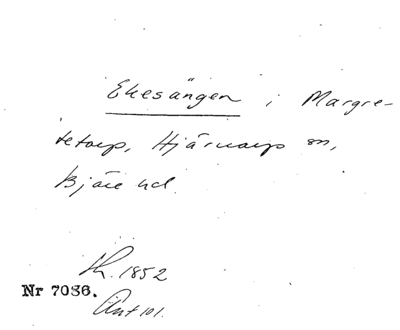 Ekesängen i Margre-
tetorp, Hjärnarps sn,
Bjäre hd.
Kr. 1852
Nr 7036.
Ant 101.